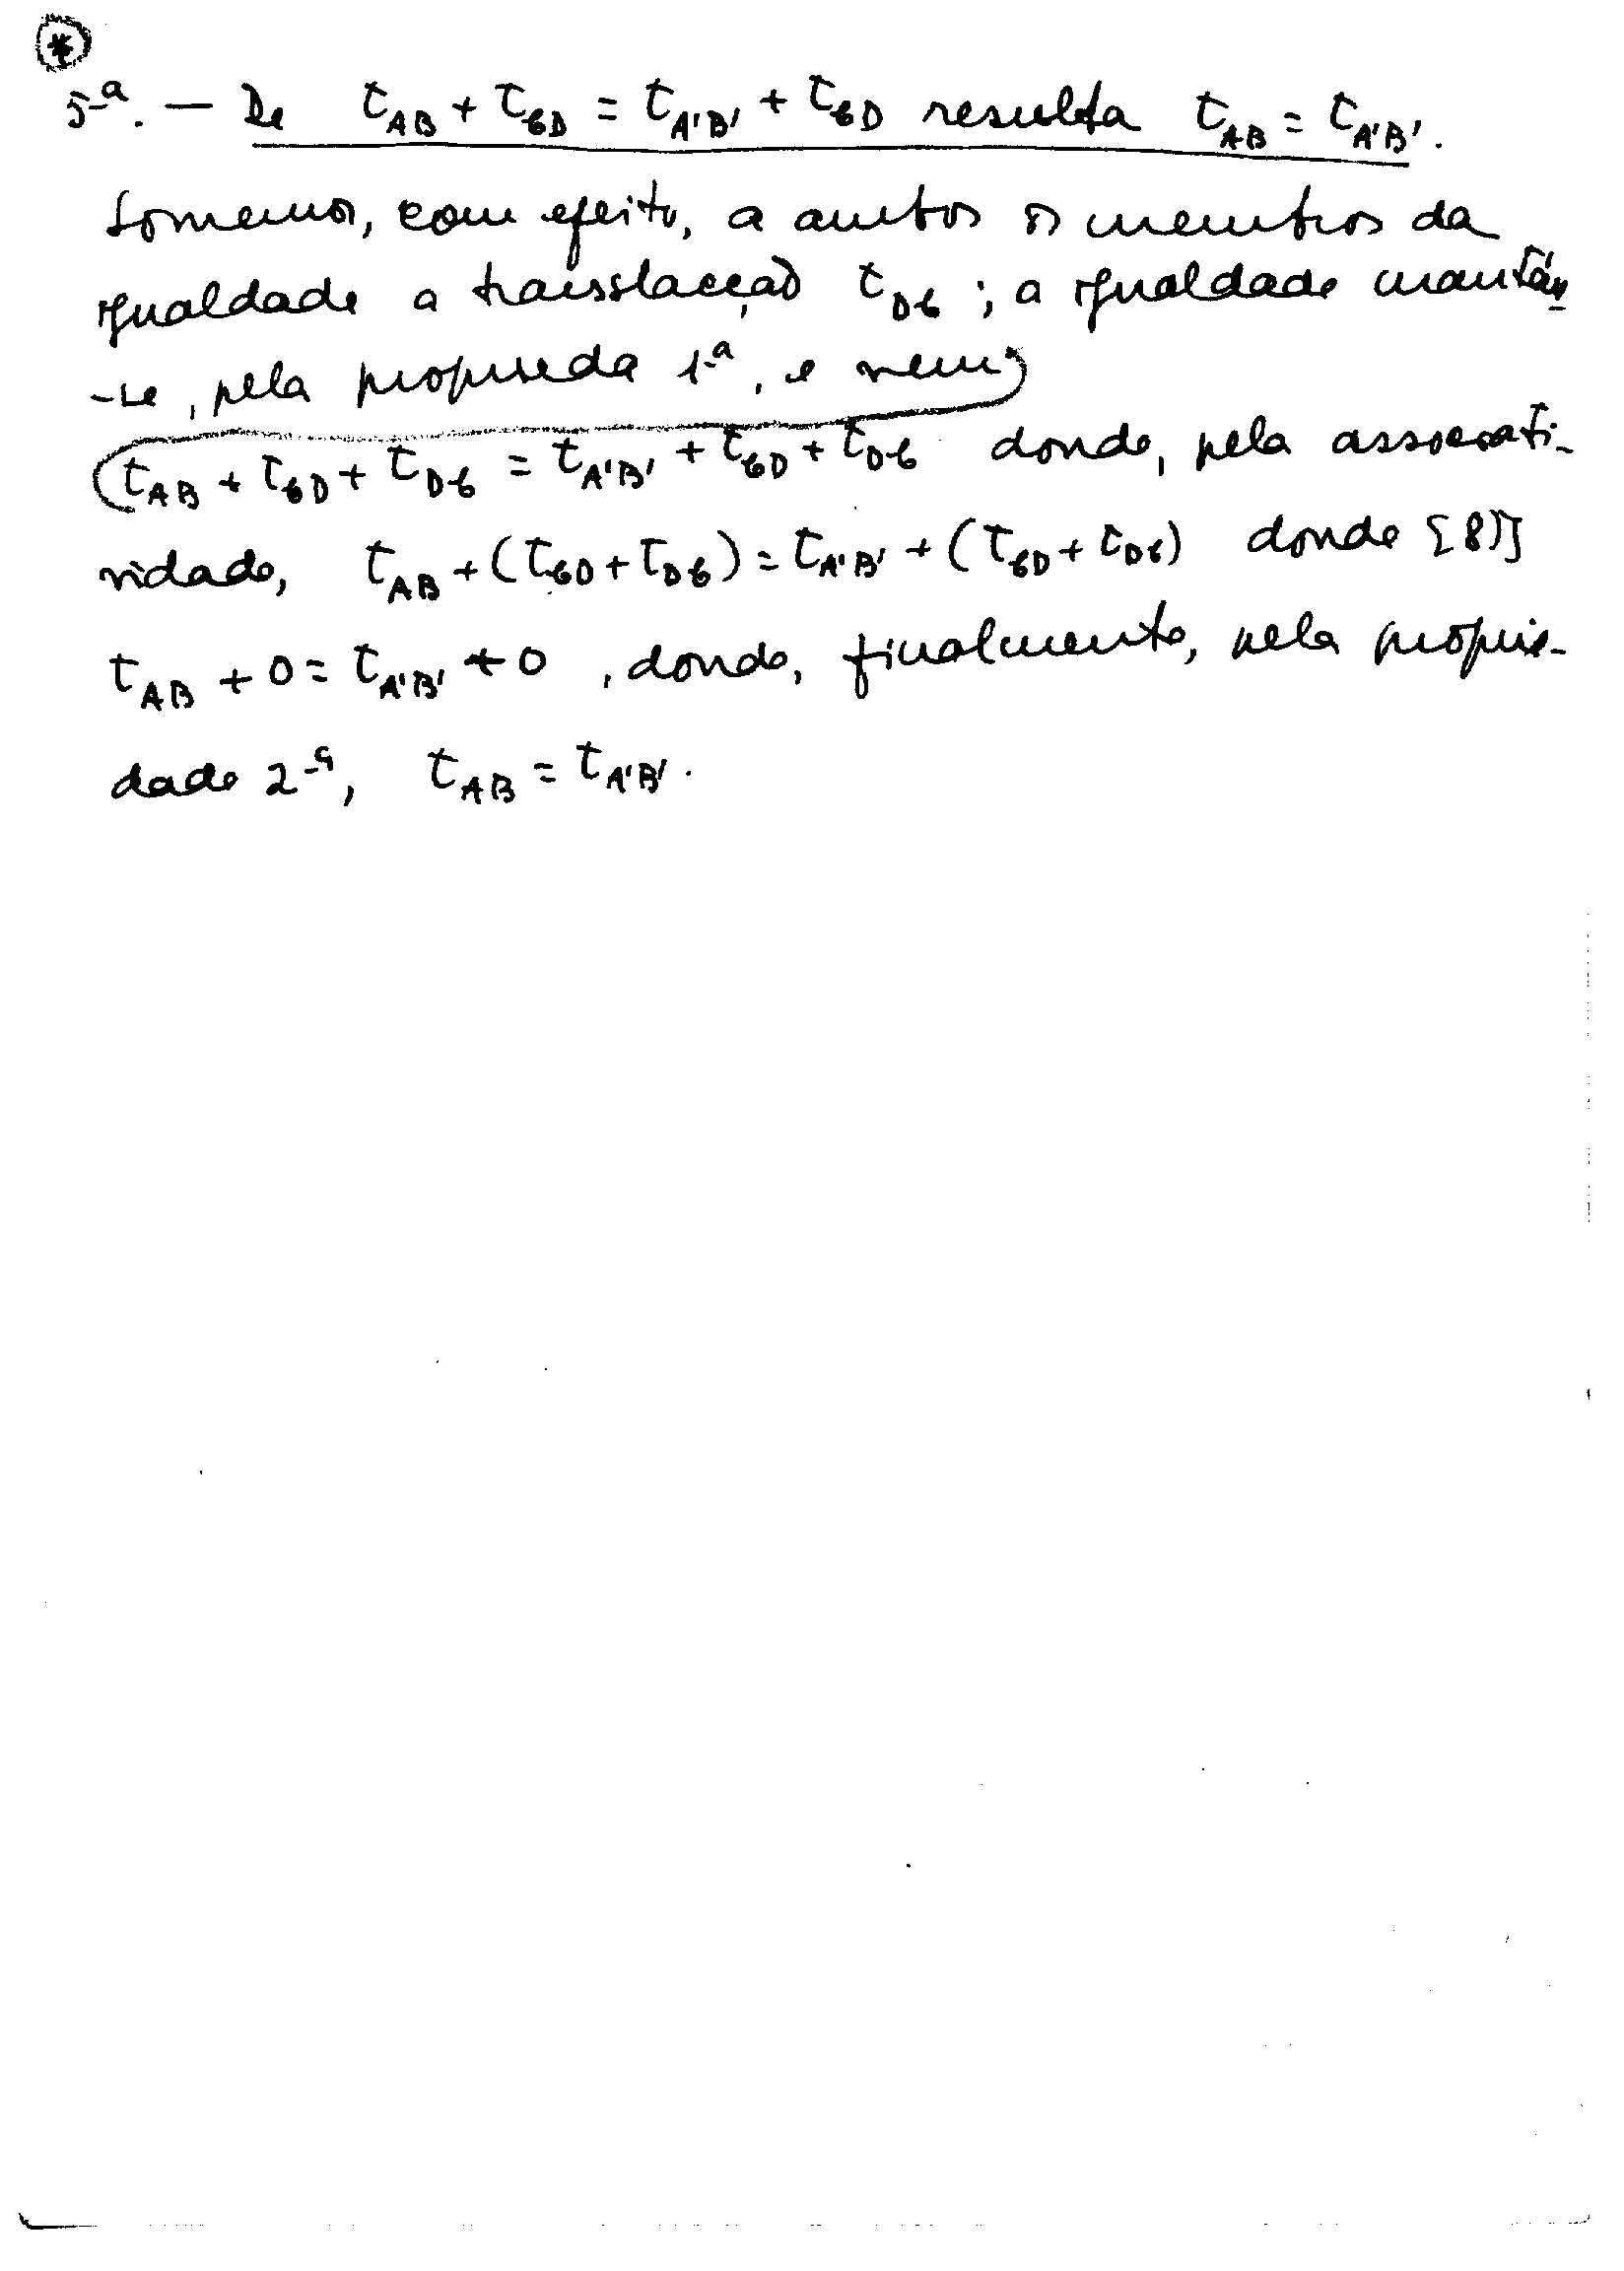 *
5ª. — De t_AB + t_CD = t_A'B' + t_CD resulta t_AB = t_A'B'.
Somemos, com efeito, a ambos os membros da
igualdade a translacção t_DC ; a igualdade mantém
-se, pela propriedade 1ª, e vem
t_AB + t_CD + t_DC = t_A'B' + t_CD + t_DC donde, pela associati-
vidade, t_AB + (t_CD + t_DC) = t_A'B' + (t_CD + t_DC) donde [8)]
t_AB + 0 = t_A'B' + 0 , donde, finalmente, pela proprie-
dade 2ª, t_AB = t_A'B'.